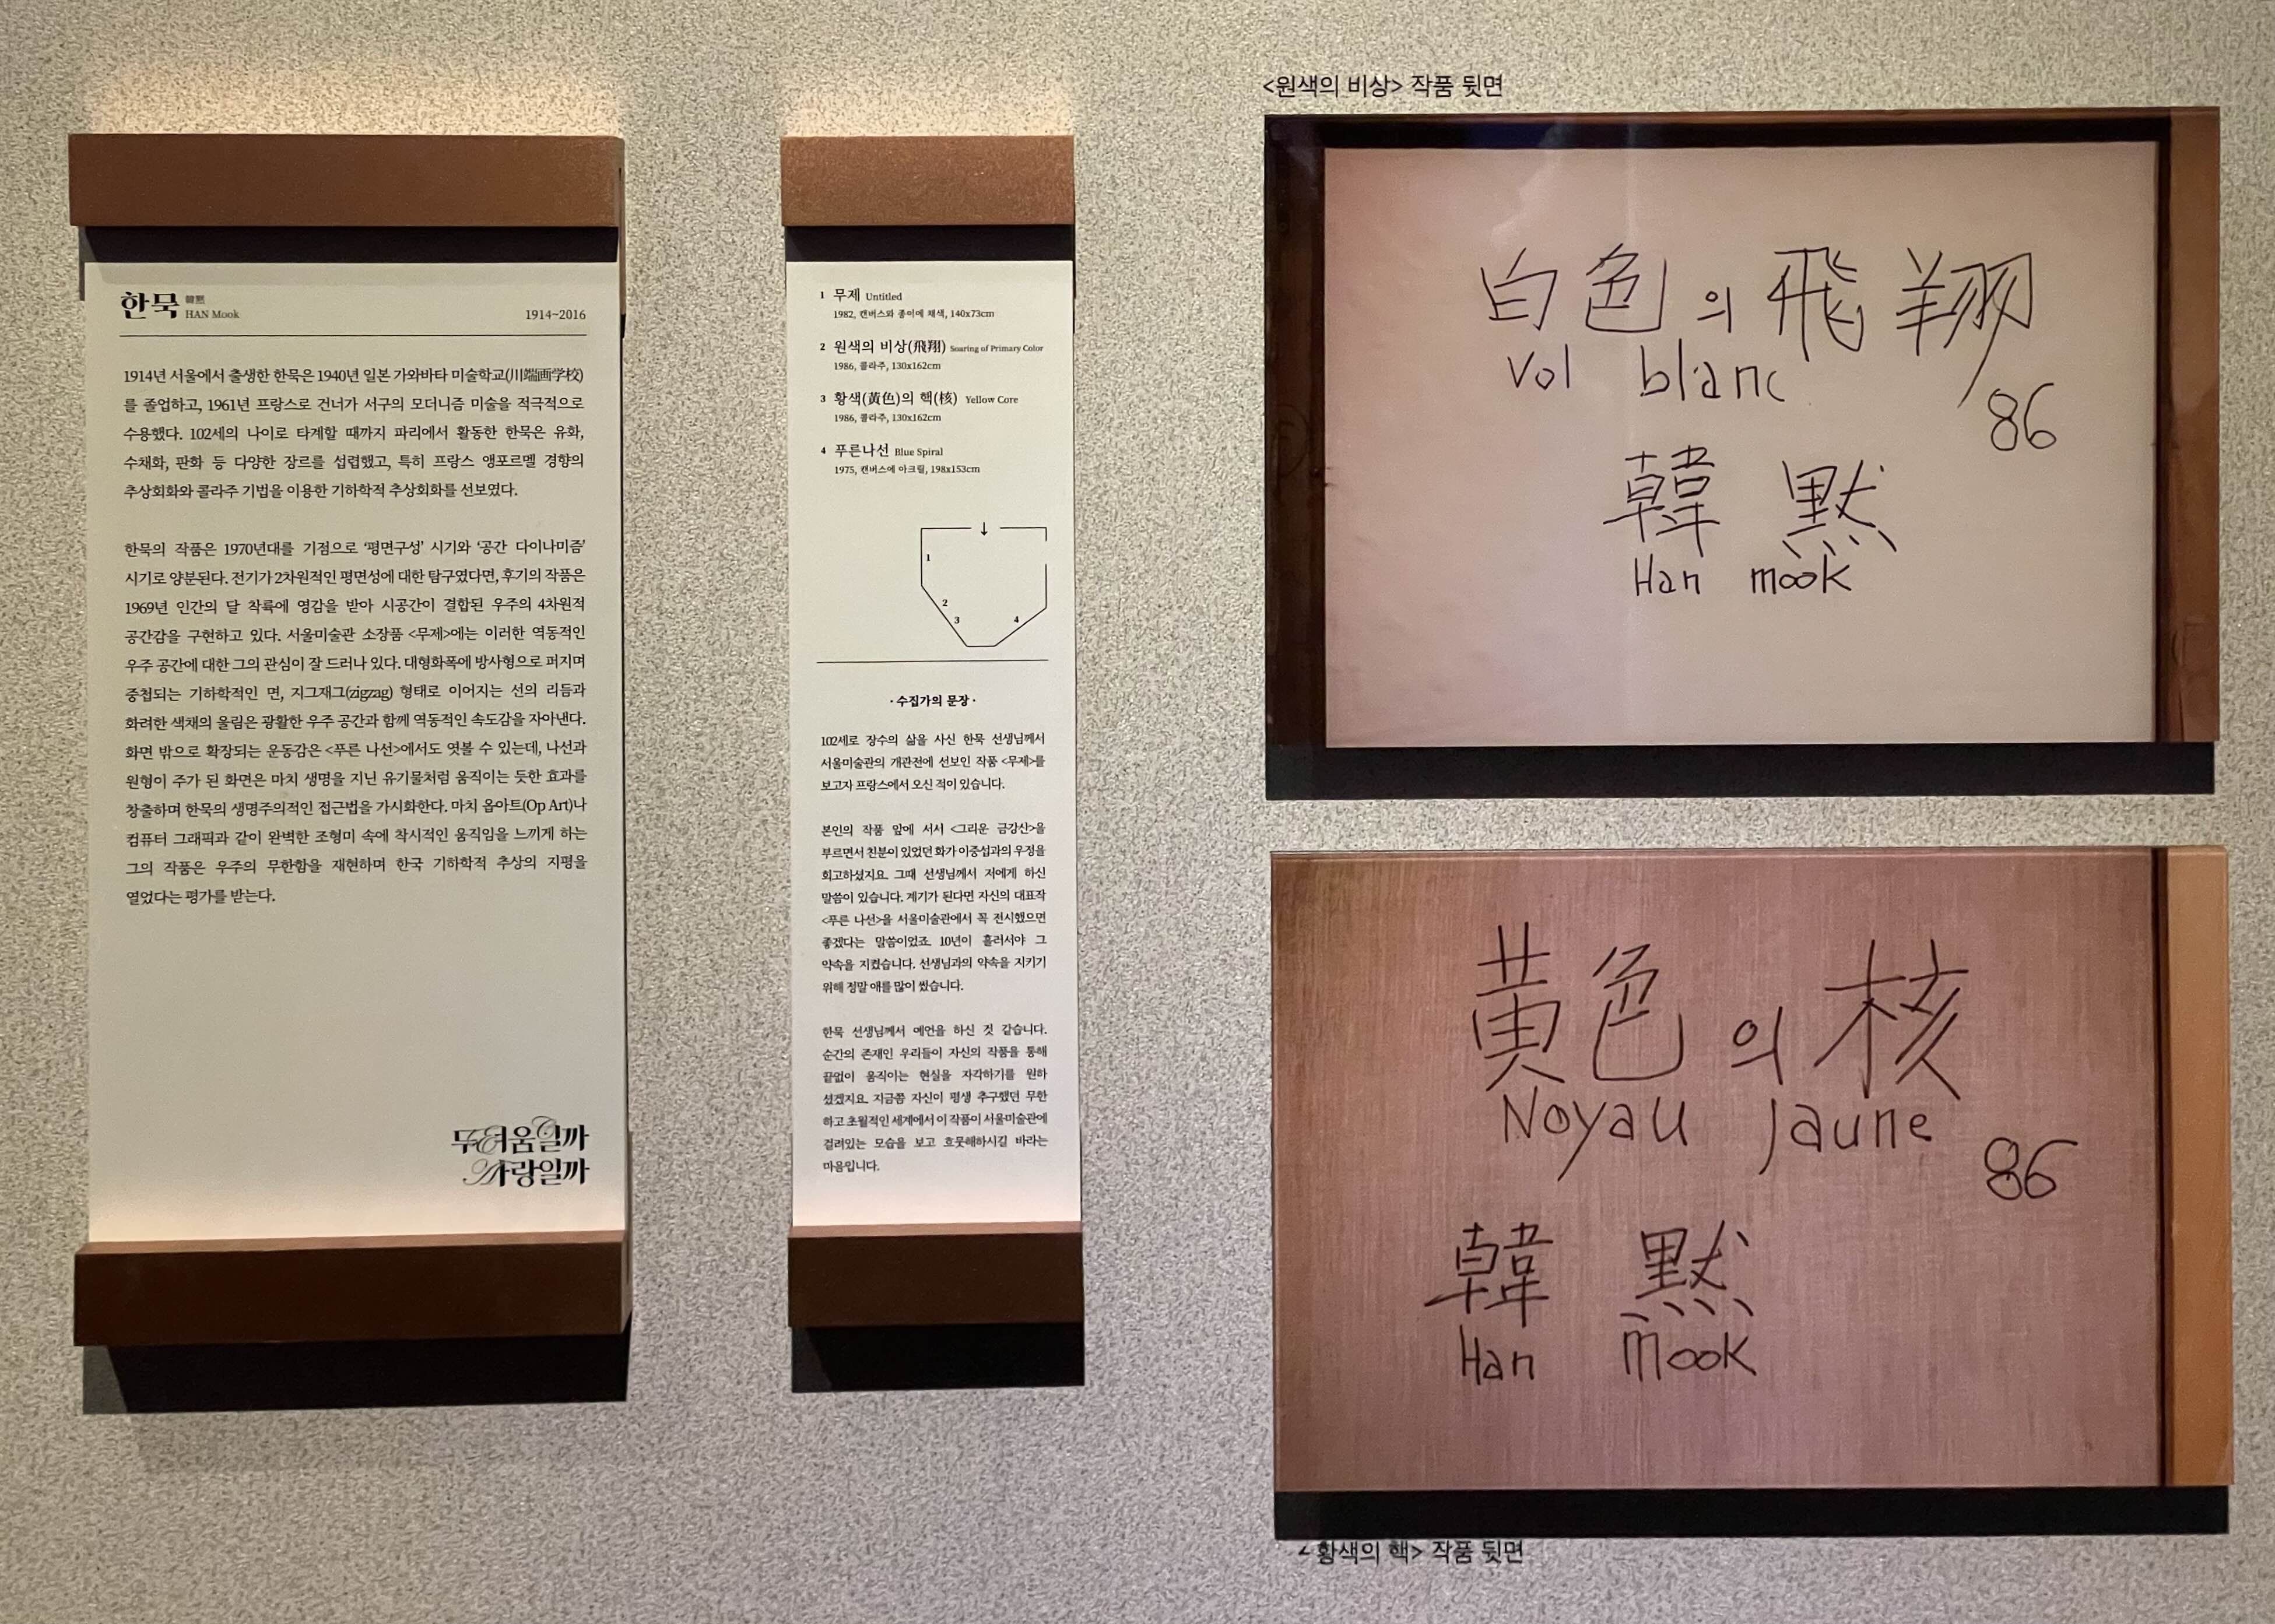 한묵 韓黙
HAN Mook
1914~2016
1914년 서울에서 출생한 한묵은 1940년 일본 가와바타 미술학교(川端画学校)
를 졸업하고, 1961년 프랑스로 건너가 서구의 모더니즘 미술을 적극적으로
수용했다. 102세의 나이로 타계할 때까지 파리에서 활동한 한묵은 유화,
수채화, 판화 등 다양한 장르를 섭렵했고, 특히 프랑스 앵포르멜 경향의
추상회화와 콜라주 기법을 이용한 기하학적 추상회화를 선보였다.
한묵의 작품은 1970년대를 기점으로 ‘평면구성’ 시기와 ‘공간 다이나미즘’
시기로 양분된다. 전기가 2차원적인 평면성에 대한 탐구였다면, 후기의 작품은
1969년 인간의 달 착륙에 영감을 받아 시공간이 결합된 우주의 4차원적
공간감을 구현하고 있다. 서울미술관 소장품 <무제>에는 이러한 역동적인
우주 공간에 대한 그의 관심이 잘 드러나 있다. 대형화폭에 방사형으로 퍼지며
중첩되는 기하학적인 면, 지그재그(zigzag) 형태로 이어지는 선의 리듬과
화려한 색채의 울림은 광활한 우주 공간과 함께 역동적인 속도감을 자아낸다.
화면 밖으로 확장되는 운동감은 <푸른 나선>에서도 엿볼 수 있는데, 나선과
원형이 주가 된 화면은 마치 생명을 지닌 유기물처럼 움직이는 듯한 효과를
창출하며 한묵의 생명주의적인 접근법을 가시화한다. 마치 옵아트(Op Art)나
컴퓨터 그래픽과 같이 완벽한 조형미 속에 착시적인 움직임을 느끼게 하는
그의 작품은 우주의 무한함을 재현하며 한국 기하학적 추상의 지평을
열었다는 평가를 받는다.
두려움일까
사랑일까
1 무제 Untitled
1982, 캔버스와 종이에 채색, 140x73cm
2 원색의 비상(飛翔) Soaring of Primary Color
1986, 콜라주, 130x162cm
3 황색(黃色)의 핵(核) Yellow Core
1986, 콜라주, 130x162cm
4 푸른나선 Blue Spiral
1975, 캔버스에 아크릴, 198x153cm
1
2
3
4
· 수집가의 문장 ·
102세로 장수의 삶을 사신 한묵 선생님께서
서울미술관의 개관전에 선보인 작품 <무제>를
보고자 프랑스에서 오신 적이 있습니다.
본인의 작품 앞에 서서 <그리운 금강산>을
부르면서 친분이 있었던 화가 이중섭과의 우정을
회고하셨지요. 그때 선생님께서 저에게 하신
말씀이 있습니다. 계기가 된다면 자신의 대표작
<푸른 나선>을 서울미술관에서 꼭 전시했으면
좋겠다는 말씀이었죠. 10년이 흘러서야 그
약속을 지켰습니다. 선생님과의 약속을 지키기
위해 정말 애를 많이 썼습니다.
한묵 선생님께서 예언을 하신 것 같습니다.
순간의 존재인 우리들이 자신의 작품을 통해
끝없이 움직이는 현실을 자각하기를 원하
셨겠지요. 지금쯤 자신이 평생 추구했던 무한
하고 초월적인 세계에서 이 작품이 서울미술관에
걸려있는 모습을 보고 흐뭇해하시길 바라는
마음입니다.
<원색의 비상> 작품 뒷면
白色의 飛翔
Vol blanc
86
韓 黙
Han mook
黃色의 核
Noyau Jaune
86
韓 黙
Han mook
<황색의 핵> 작품 뒷면